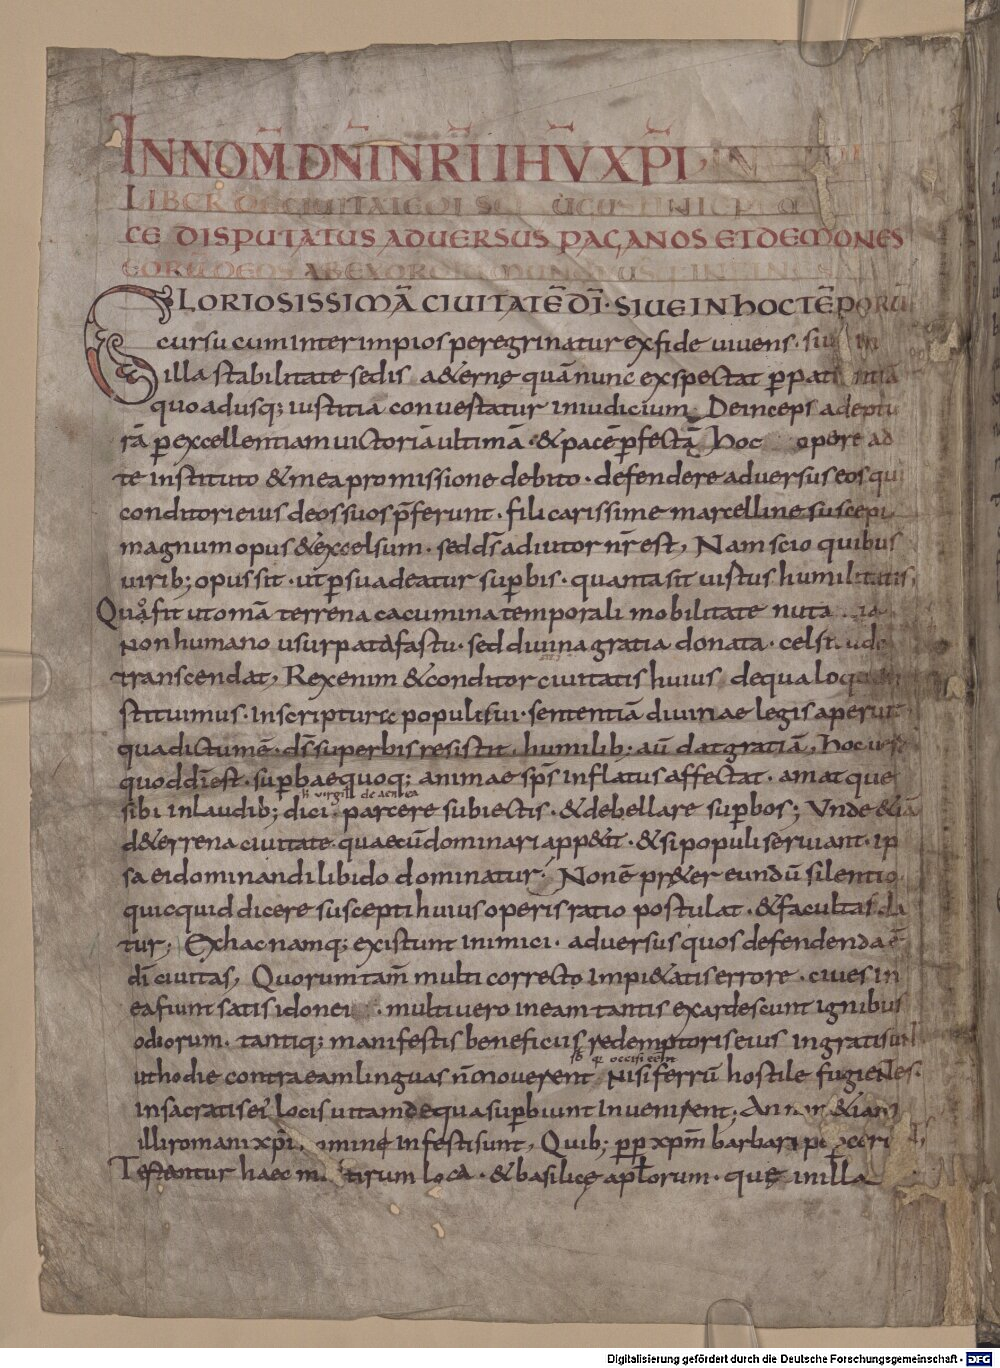 IN NOM̄ DN̄I NR̄I IHV̄ XP̄I
LIBER DE CIUITATE DI
CE DISPUTATUS ADUERSUS PAGANOS ET DEMONES
EORŪ DEOS AB EXORDIO MUNDI
GLORIOSISSIMĀ CIUITATĒ DĪ · SIUE IN HOC TĒPORŪ
cursu cum inter impios peregrinatur ex fide uiuens · siue in
illa stabilitate sedis a&ernę quā nunc exspectat p̱ patientiā
quoadusq; iustitia conuestatur in iudicium · Deinceps adeptu
rā p̱ excellentiam uictoriā ultimā · & pacē p̱fectā hoc opere ad
te instituto & mea promissione debito · defendere aduersus eos qui
conditori eius deos suos p̄ferunt · fili carissime marcelline suscepi
magnum opus & excelsum · sed ds̄ adiutor nr̄ est, Nam scio quibus
uirib; opus sit · ut p̱suadeatur sup̱bis · quanta sit uirtus humilitatis,
Qua fit ut omā terrena cacumina temporali mobilitate nuta
non humano usurpata fastu · sed diuina gratia donata · celsitudo
transcendat, Rex enim & conditor ciuitatis huius de qua loqui in
stituimus · In scripturis populi sui · sententiā diuinae legis aperuit
qua dictum ē · ds̄ superbis resistit · humilib; aū dat gratiā, hoc uero
quod dī est · sup̱bae quoq; animae sp̄s inflatus affectat · amat que
h virgilł de aenea
sibi in laudib; dici · parcere subiectis · & debellare sup̱bos; Unde &iā
d& terrena ciuitate quae cū dominari app&it · & si populi seruiant · ip
sa ei dominandi libido dominatur · Non ē pr&er eundū silentio
quicquid dicere suscepti huius operis ratio postulat · & facultas da
tur; Ex hac namq; existunt inimici · aduersus quos defendenda ē
dī ciuitas, Quorum tam̄ multi correcto impi&atis errore · ciues in
ea fiunt satis idonei · multi uero in eam tantis exardescunt ignibus
odiorum · tantiq; manifestis beneficiis redemptoris eius ingrati sunt
occisi eēnt
ut hodie contra eam linguas n̄ mouerent nisi ferrū hostile fugientes ·
in sacratis ei locis uitam de qua sup̱biunt inuenirent; An non &iam
illi romani xp̄i nomine infesti sunt, Quib; p̱p xpm̄ barbari pepcerī
Testantur haec martirum loca · & basilicę apl̄orum · quę in illa